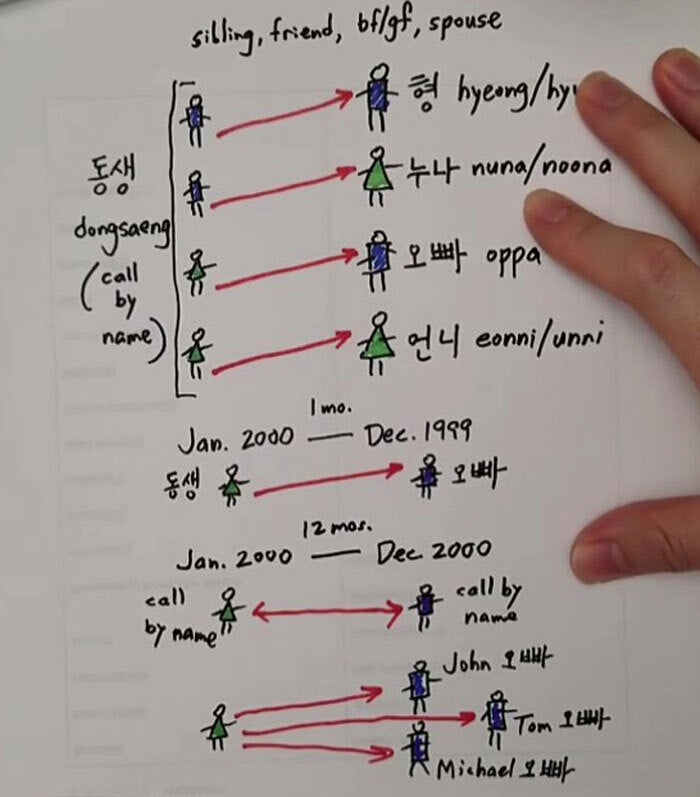 sibling, friend, bf/gf, spouse
형 hyeong/hyu
동생
dongsaeng
(call
by
name)
누나 nuna/noona
오빠 oppa
언니 eonni/unni
1 mo.
Jan. 2000 — Dec. 1999
동생 오빠
12 mos.
Jan. 2000 — Dec 2000
call
by name
call by
name
John 오빠
Tom 오빠
Michael 오빠